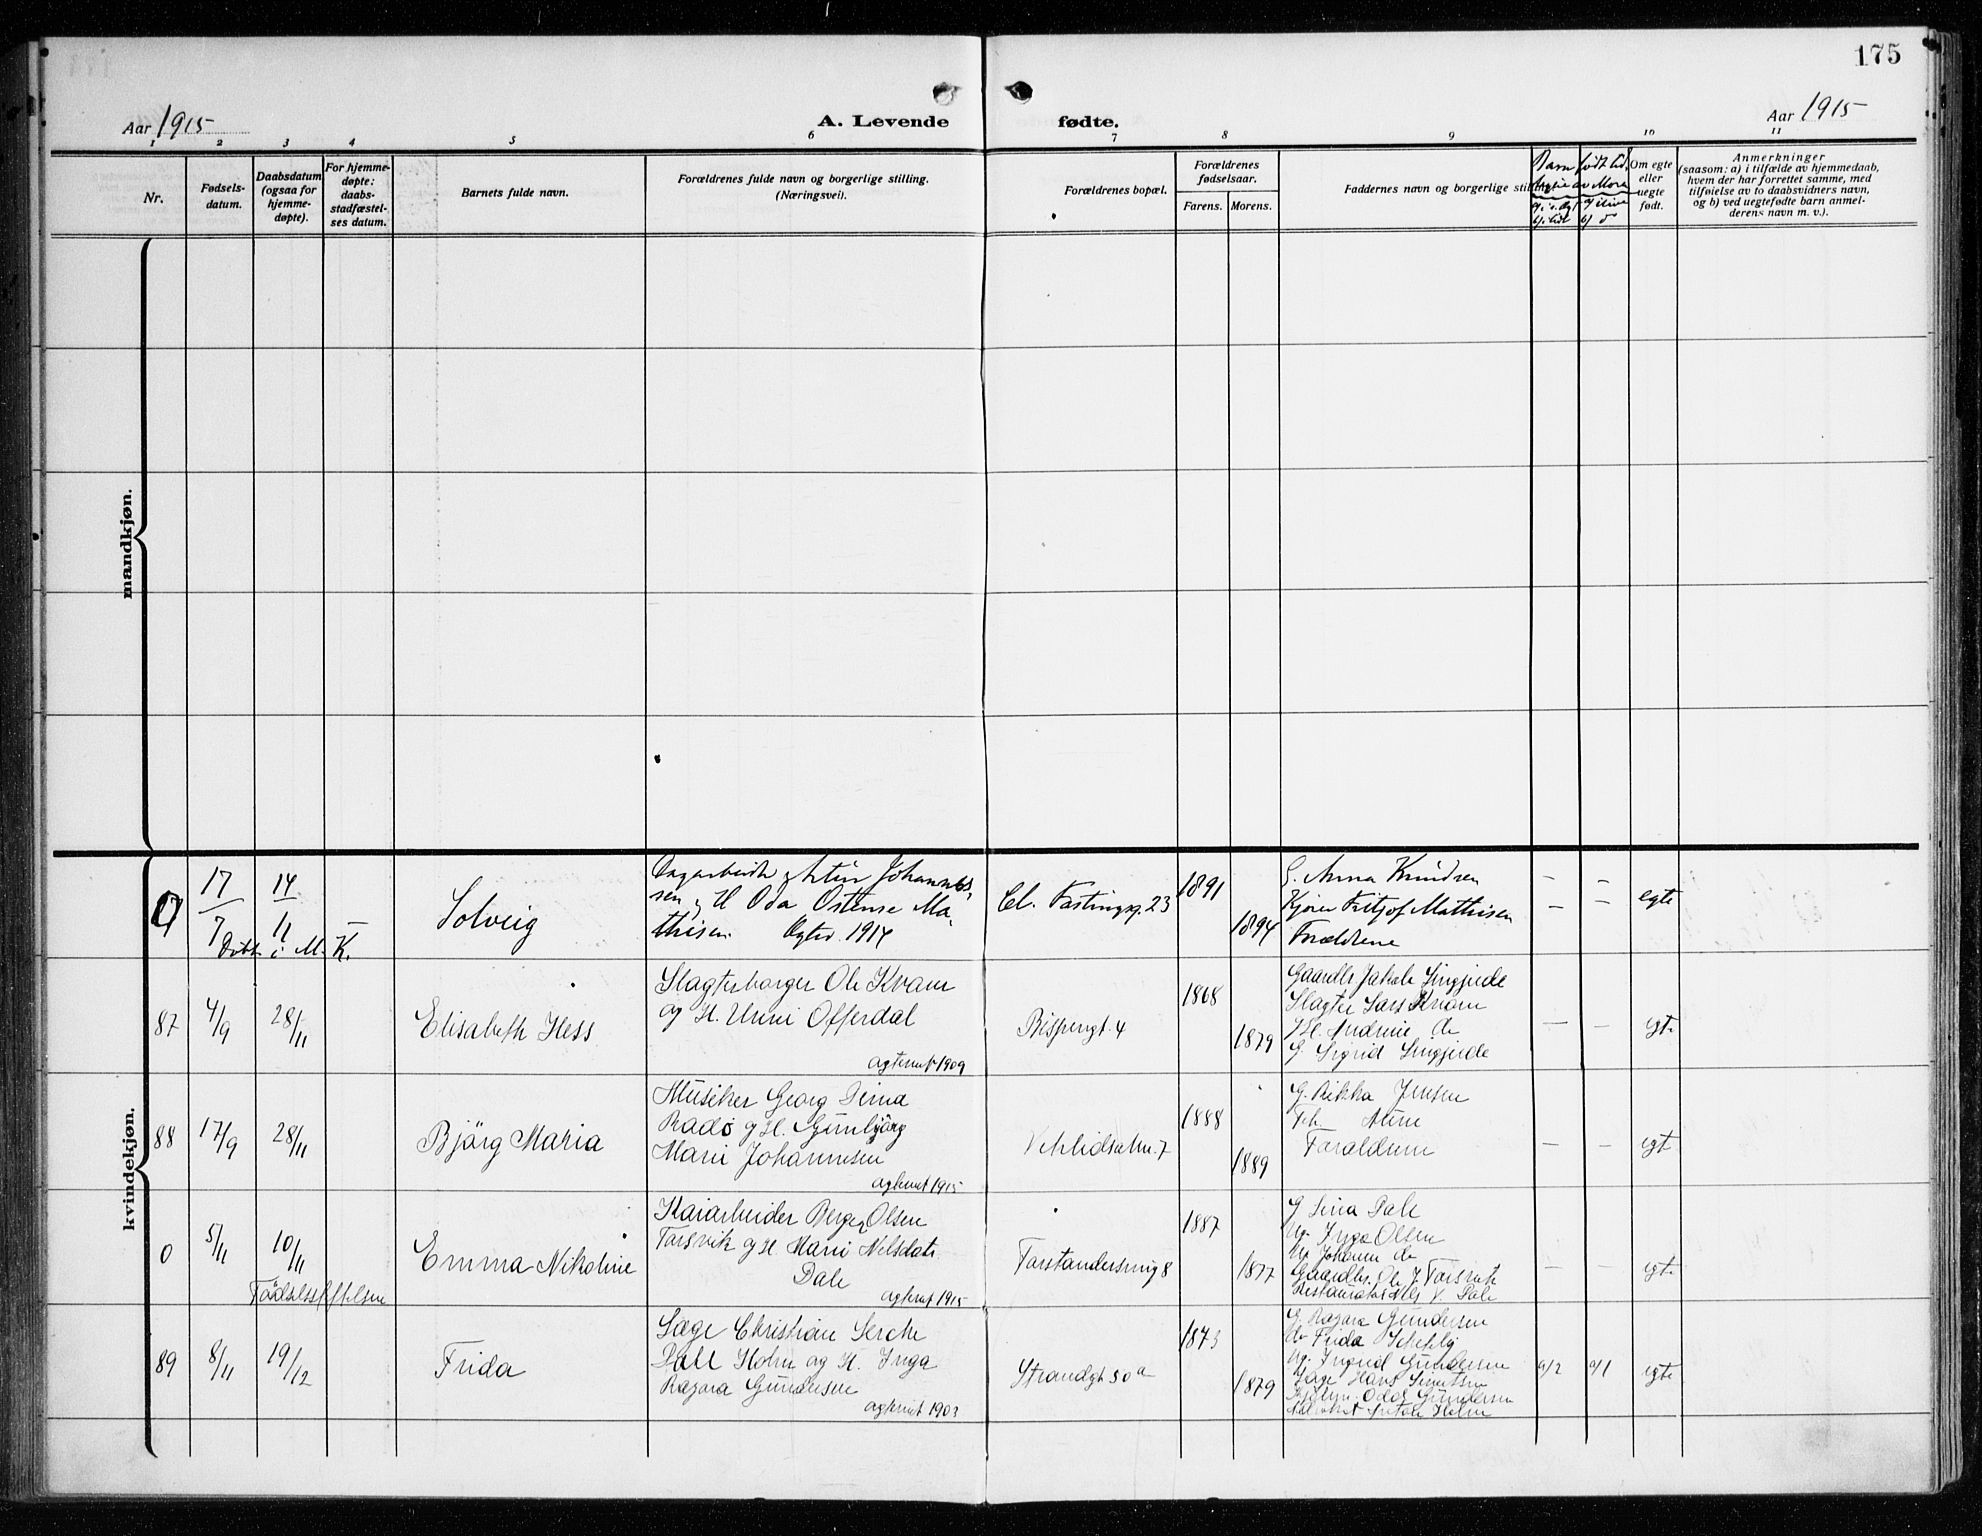 175
Aar 1915
A. Levende fødte.
Aar 1915
1 2 3 4 5 6 7 8 9 10 11
Nr.
Fødsels-
datum.
Daabsdatum
(ogsaa for
hjemme-
døpte).
For hjemme-
døpte:
daabs-
stadfæstel-
ses datum.
Barnets fulde navn.
Forældrenes fulde navn og borgerlige stilling.
(Næringsvei).
Forældrenes bopæl.
Forældrenes
fødselsaar.
Farens. Morens.
Faddernes navn og borgerlige
Barn født tid
av Mora
Om egte
eller
uegte
født.
Anmerkninger
(saasom: a) i tilfælde av hjemmedaab,
hvem der har forrettet samme, med
tilføielse av to daabsvidners navn,
og b) ved uegtefødte barn anmel-
derens navn m. v.).
mandkjøn.
kvindekjøn.
0
17/7
14/11
Døbt i M. K.
Solveig
Johannes-
sen og H Oda Ostense Ma-
thisen. Egtev. 1914
Cl. Fastingsg. 23
1891
1894
G. Anna Knudsen
Fritjof Mathisen
Forældrene
— —
— —
egte
87
4/9
28/11
Elisabeth Hess
Slagterborger Ole Kvam
og H. Unni Offerdal
egteviet 1909
Bispengt 4
1868
1879
Gaardbr Jakob Lingjerde
Slagter Lars Kvam
do
G. Sigrid Lingjerde
— —
egte
88
17/9
28/11
Bjørg Maria
Musiker Georg
Radö og H. Gunbjörg
Marie Johannesen
egteviet 1915
7
1888
1889
G. Rikka Jensen
Forældrene
— —
egte
0
5/11
10/11
Fødselsstiftelsen
Emma Nikoline
Kaiarbeider Berge Olsen
Forsvik og H. Marie Nelsdatr
Dale
egteviet 1915
Forstandersmug 8
1887
1877
G Dale
Ug. Inga Olsen
Ug. Johanne do
Gaardbr. Ole J. Forsvik
Restauratør Nels V. Dale
— —
egte
89
8/11
19/12
Frida
Læge Christian Lerche
Dall Holm og H. Inga
Ragara Gundersen
egteviet 1903
Strandgt 50a
1873
1879
G. Ragara Gundersen
do Frida
Ug. Ingrid Gundersen
Læge Hans
Odd Gundersen
Holm
g/2 g/1
egte